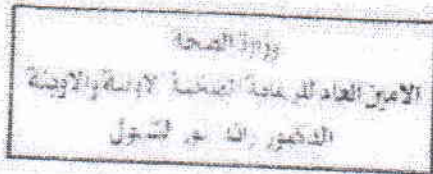 وزارة الصحة
الامين العام للرعاية الصحية الاولية والاوبئة
الدكتور رائد الشبول